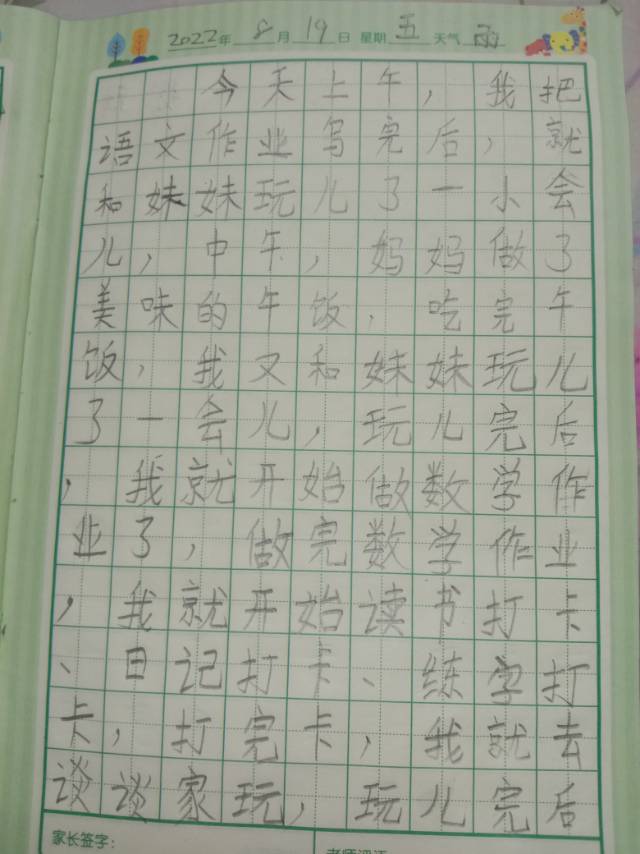 2022年8月19日 星期五 天气雨
今天上午，我把
语文作业写完后，就
和妹妹玩儿了一小会
儿，中午，妈妈做了
美味的午饭，吃完午
饭，我又和妹妹玩儿
了一会儿，玩儿完后
，我就开始做数学作
业了，做完数学作业
，我就开始读书打卡
、日记打卡、练字打
卡，打完卡，我就去
谈谈家玩，玩儿完后
家长签字：